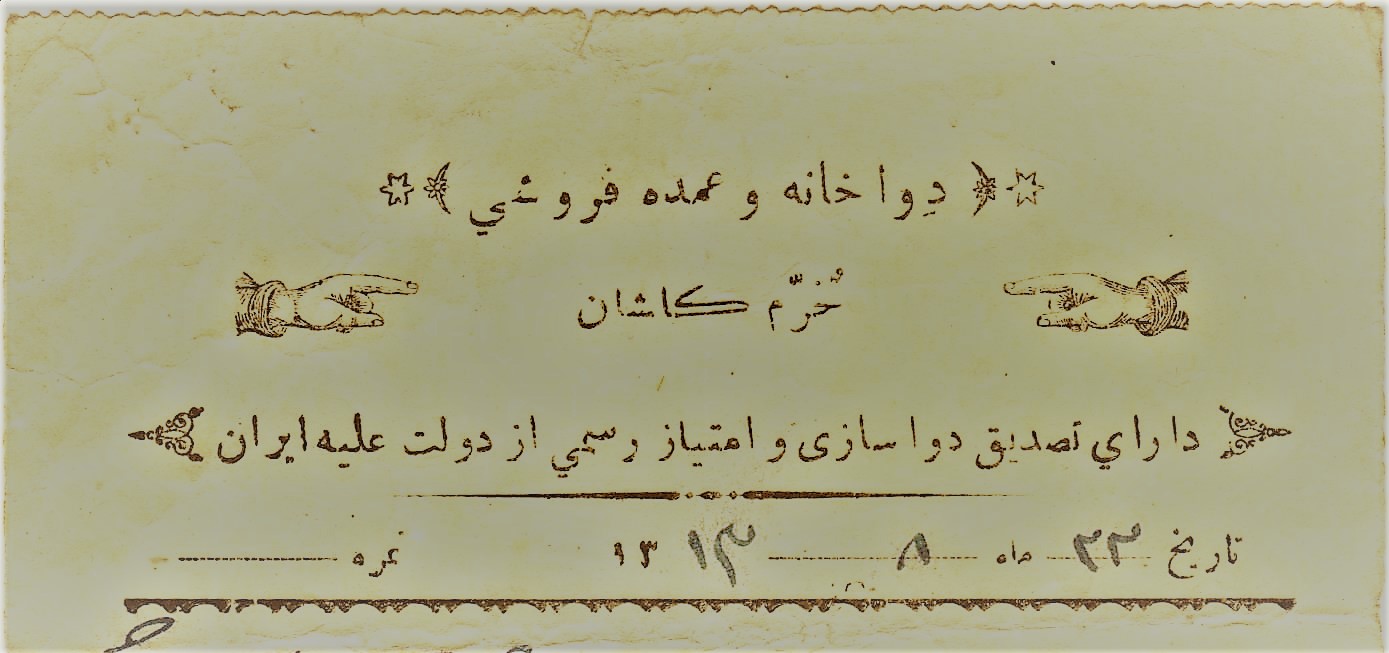 دِوا خانه و عمده فروشي
خُرّم كاشان
داراي تصديق دوا سازى و امتياز رسمي از دولت عليه ايران
تاريخ ۲۳ ماه ۸ ۱۳۱۳ نمره